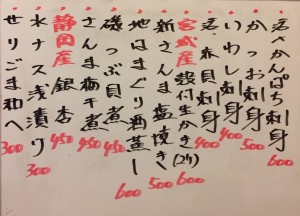 活〆かんぱち刺身 600
かつお刺身 500
いわし刺身 400
活〆赤貝刺身 400
宮城産 殻付生かき(2ケ) 600
新さんま塩焼き 500
地はまぐり酒蒸し 600
磯つぶ貝煮 450
さんま梅干煮 450
静岡産 銀杏 450
水ナス浅漬り 300
せりごま和へ 300